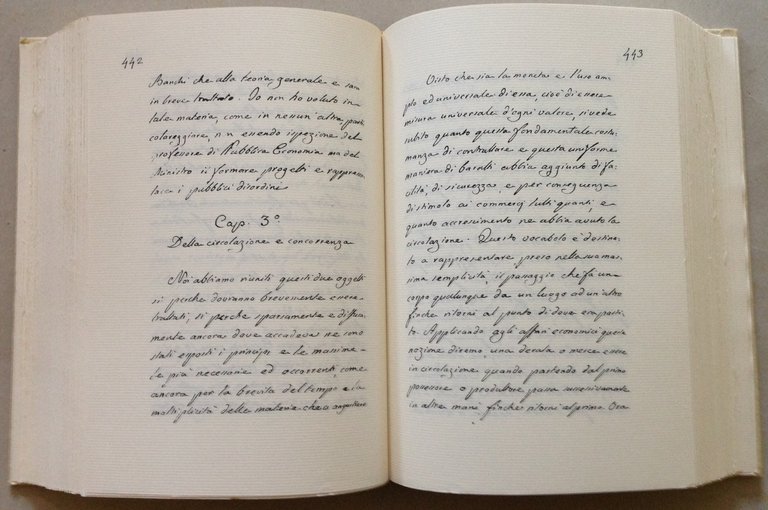 442
Banchi che alla teoria generale e sam
in breve trattato. Io non ho voluto in
tale materia, come in nessun'altra, parti
coloreggiare, non essendo ispezione del
professore di Pubblica Economia ma del
Ministro il formare progetti e rappresen
tare i pubblici disordini
Cap. 3º
Della circolazione e concorrenza
Noi abbiamo riuniti questi due oggetti
sì perche dovranno brevemente essere
trattati, sì perche sparsamente e diffusa
mente ancora dove accadeva ne sono
stati esposti i principj e le massime
le più necessarie ed occorrenti, come
ancora per la brevità del tempo e la
moltiplicità delle materie che ci angustiano
443
Visto che sia la moneta e l'uso am
plo ed universale di essa, cioè di essere
misura universale d'ogni valore, si vede
subito quanto questa fondamentale costu
manza di contrattare e questa uniforme
maniera di baratti abbia aggiunto di fa
cilità, di sicurezza, e per conseguenza
di stimolo ai commerci tutti quanti, e
quanto accrescimento ne abbia avuto la
circolazione. Questo vocabolo è destina
to a rappresentare preso nella sua mas
sima semplicità, il passaggio che fa un
corpo qualunque da un luogo ad un altro
finche ritorni al punto di dove era parti
to. Applicando agli affari economici questa
nozione diremo, una derata o merce essere
in circolazione quando partendo dal primo
possessore o produttore passa successivamente
in altre mani, finche ritorni al primo. Ora